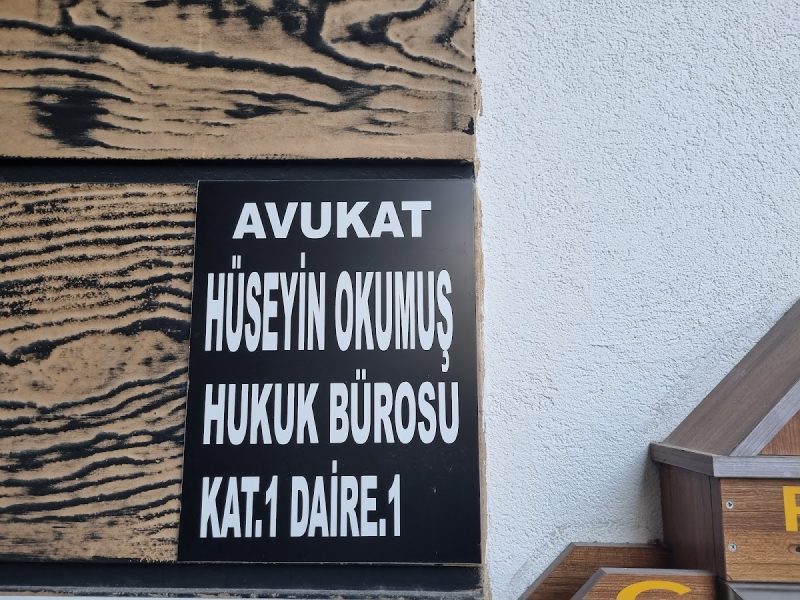 AVUKAT
HÜSEYİN OKUMUŞ
HUKUK BÜROSU
KAT.1 DAİRE.1